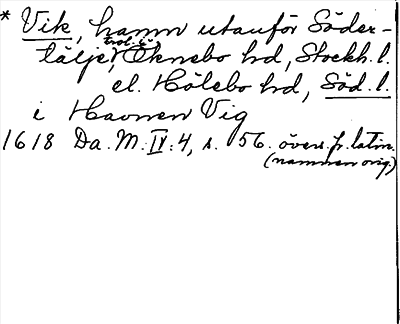 * Vik, hamn utanför Söder-
tälje, trol. i Öknebo hd, Stockh. l.
el. Hölebo hd, Söd. l.
i Havnen Vig
1618 Da. M. IV: 4, s. 56. övers. fr. latin.
(namnen orig.)